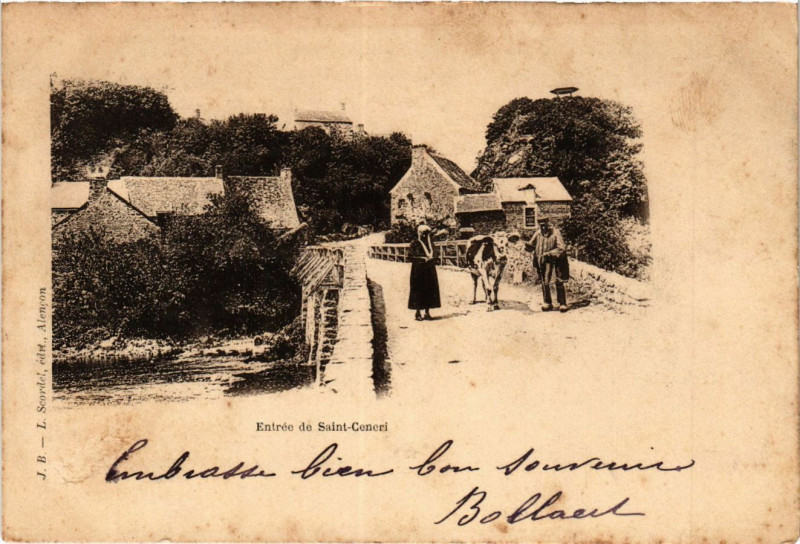 J. B. — L. Scordel, édit., Alençon
Entrée de Saint-Ceneri
Embrasse bien bon souvenir
Bollaert